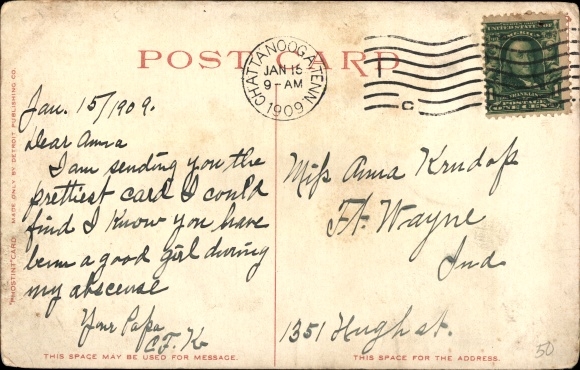 POST CARD
CHATTANOOGA, TENN.
JAN 15
9-AM
1909
C
UNITED STATES OF
AMERICA
FRANKLIN
POSTAGE
"PHOSTINT" CARD MADE ONLY BY DETROIT PUBLISHING CO.
Jan. 15/1909.
Dear Anna
I am sending you the
prettiest card I could
find I know you have
been a good girl during
my abscense
Your Papa
C.F.K.
Miss Anna
Ft. Wayne
Ind
1351 Hugh st.
THIS SPACE MAY BE USED FOR MESSAGE.
THIS SPACE FOR THE ADDRESS.
50